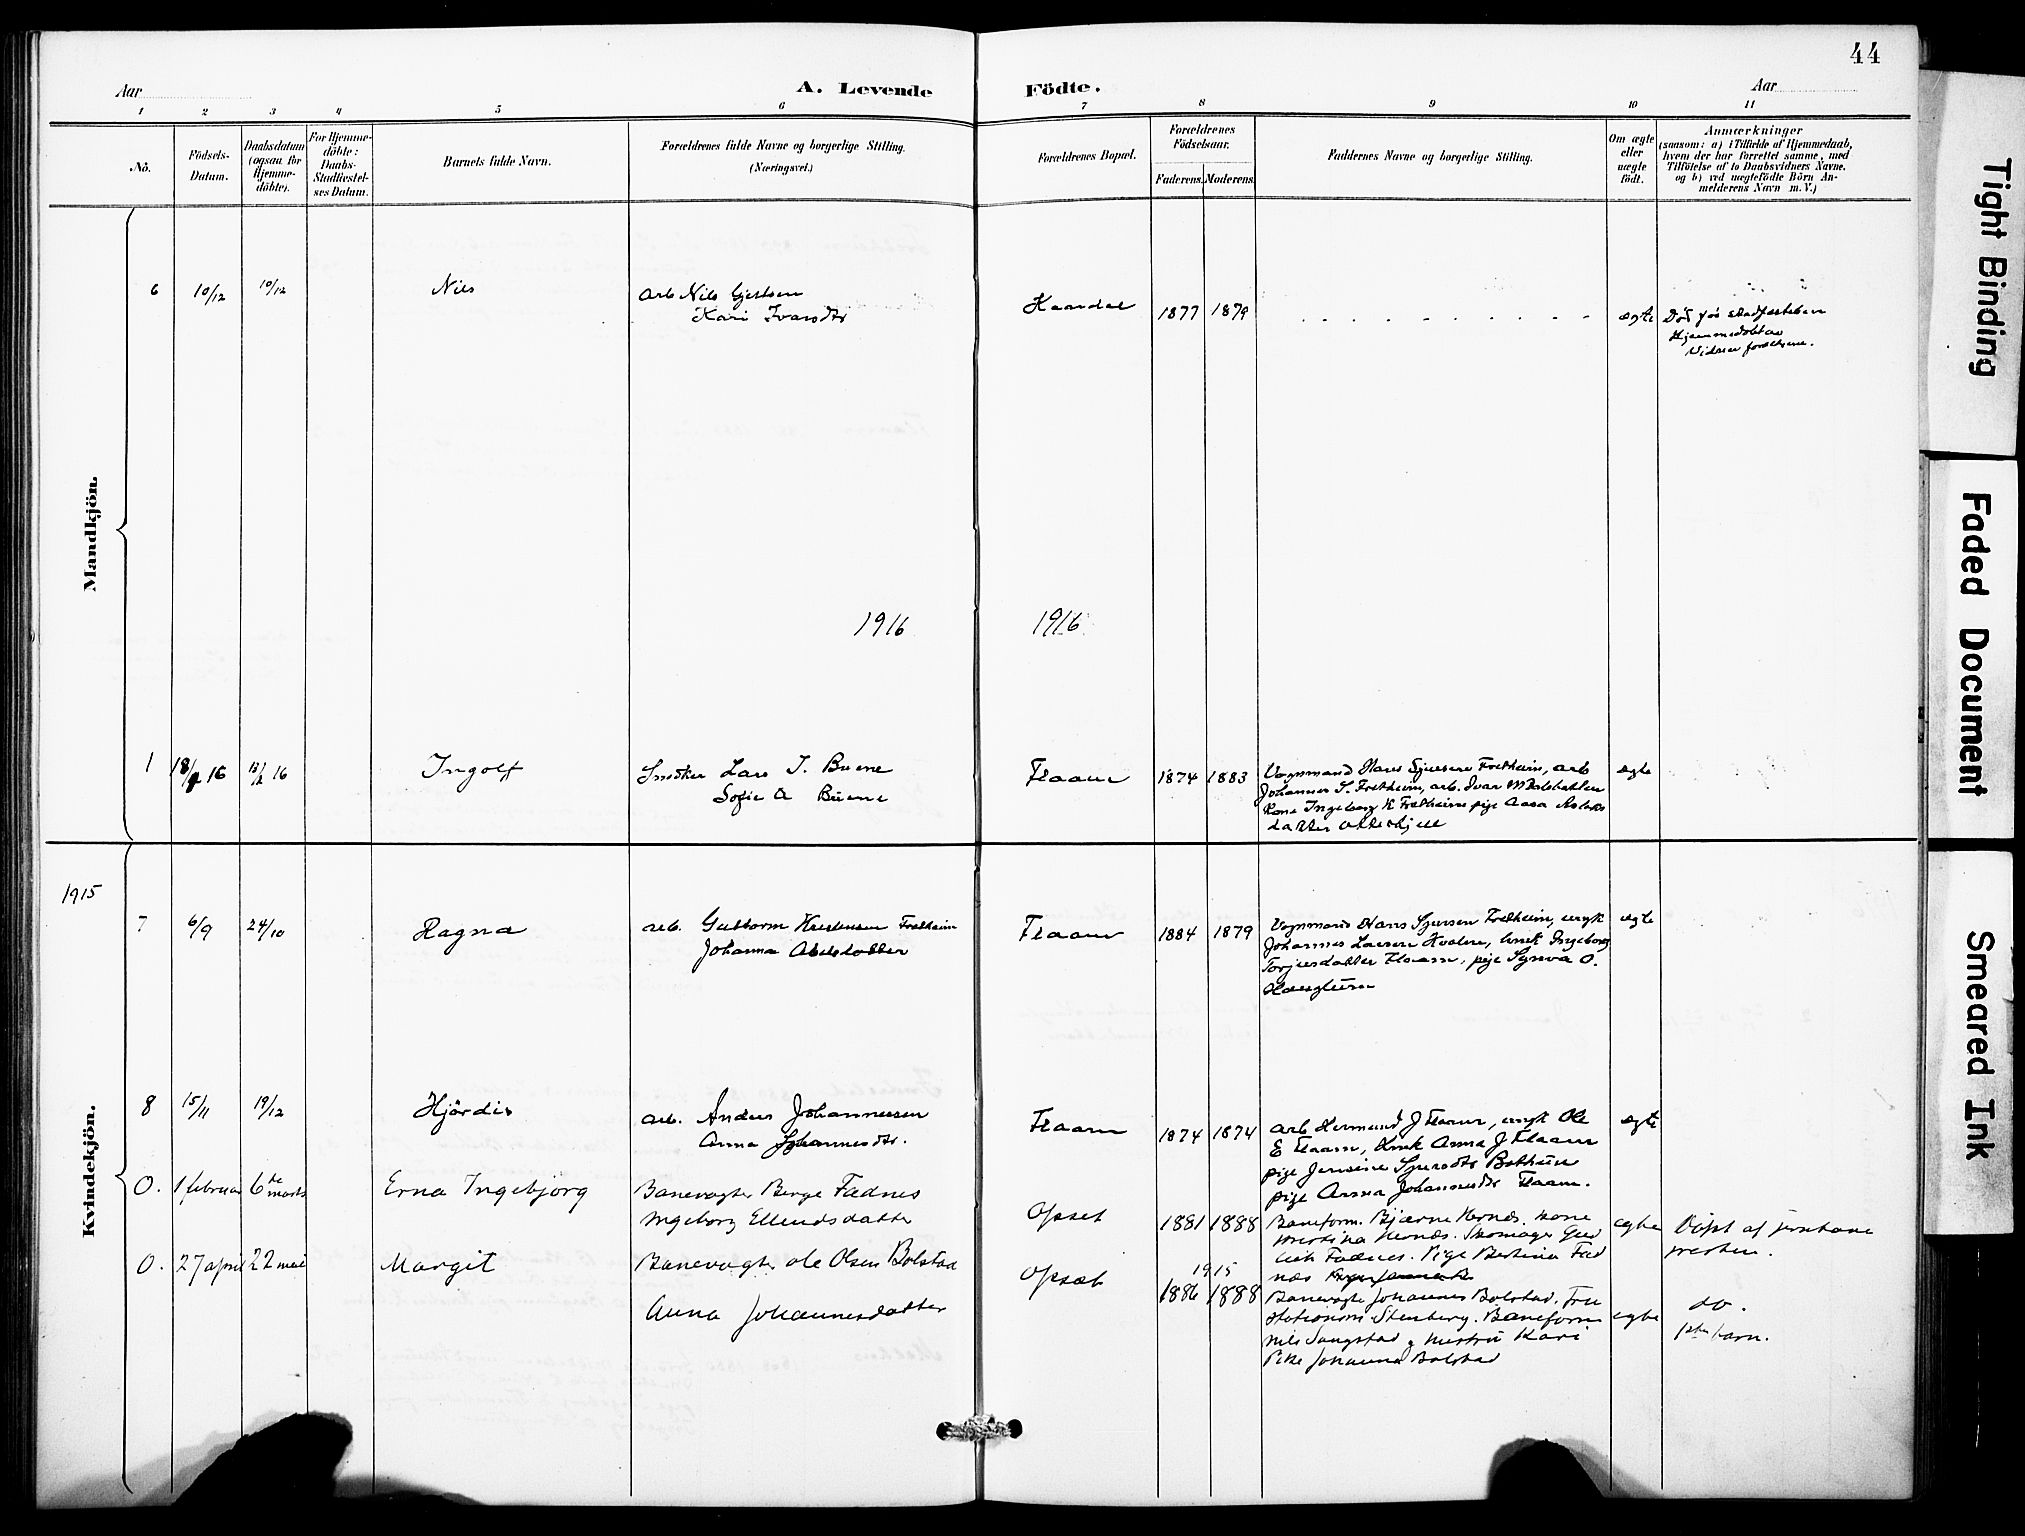 44
Aar
A. Levende
Födte.
Aar
1 2 3 4 5 6 7 8 9 10 11
No.
Födsels-
Datum.
Daabsdatum
(ogsaa for
Hjemme-
döbte).
For Hjemme-
döbte:
Daabs-
Stadfæstel-
ses Datum.
Barnets fulde Navn.
Forældrenes fulde Navne og borgerlige Stilling.
(Næringsvei.)
Forældrenes Bopæl.
Forældrenes
Födselsaar.
Faderens. Moderens.
Faddernes Navne og borgerlige Stilling.
Om ægte
eller
uægte
födt.
Anmærkninger
(saasom: a) i Tilfælde af Hjemmedaab,
hvem der har forrettet samme, med
Tilföielse af to Daabsvidners Navne.
og b) ved uægtefödte Börn An-
melderens Navn m. V.)
Mandkjön.
6 10/12 10/12 Nils
arb Nils Gjertsen
Kari Ivarsdtr
Kaardal 1877 1879
ægte
Död för stadfæstelsen
Hjemmedöbt av
Vidner forældrene.
1916 1916
1 16 16 Ingolf
Snedker Lars J. Buene
Sofie A Buene
Flaam 1874 1883
Vognmand Hans Sjursen Fretheim, arb
Johannes S. Fretheim, arb. Ivar
Kone Ingeborg K Fretheim pige Aasa
datter
ægte
Kvindekjön.
1915
7 6/9 24/10 Ragna
arb. Guttorm Kristensen Fretheim
Johanna Abelsdatter
Flaam 1884 1879
Vognmand Hans Sjursen Fretheim, ungk
Johannes Larsen Kvalen, hust Ingeborg
Torjersdatter Flaam, pige Synva O.
ægte
8 15/11 19/12 Hjördis
arb. Anders Johannesen
Anna Johannesdtr.
Flaam 1874 1874
arb Hermund J Flaam, ungk Ole
E Flaam, Hust Anna J Flaam
pige Jensine Sjursdtr
pige Anna Johannesdtr Flaam.
ægte
0. 1 februar 6te marts Erna Ingebjorg
Banevogter Berge Fadnes
Ingeborg Ellendsdatter
Opset 1881 1888
Baneform. Bjarne Hernæs. kone
Kristina Hernæs. Skomager
Fadnes. Pige Bertina Fad
næs
egte
Döpt af jernbane
presten.
0. 27 april 22 mai Margit
Banevogter ole Olsen Bolstad
Anna Johannesdatter
Opsæt
1915
1886 1888
Banevogter Johannes Bolstad. Fru
Stenberg. Baneform
Nils Sangstad og hustru Kari
Pike Johanna Bolstad
egte
do.
1ste barn.
Tight Binding
Faded Document
Smeared Ink